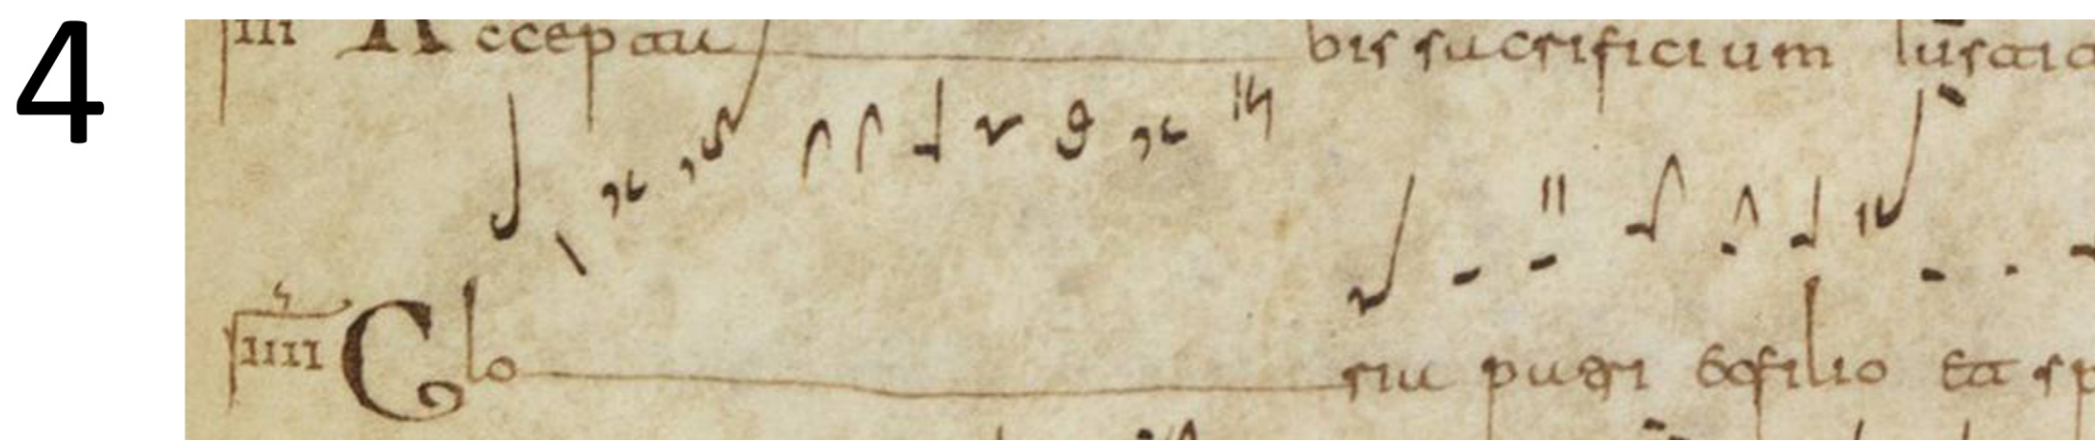 4
III Accepta bis sacrificium Iustit
IIII Glo ria patri et filio et sp